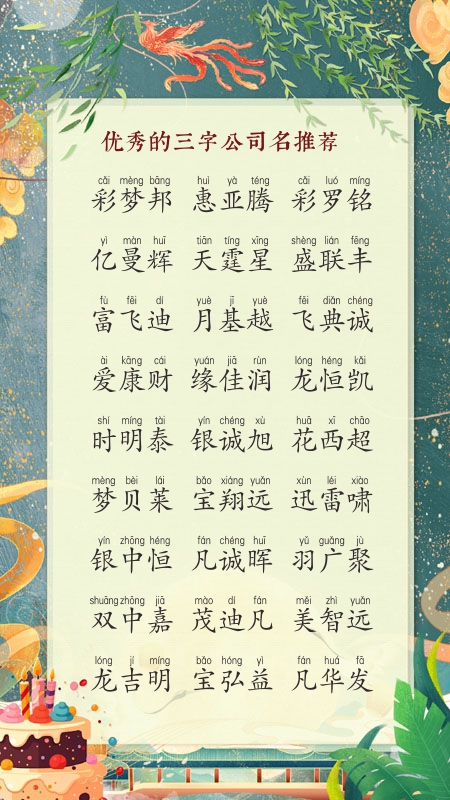 优秀的三字公司名推荐
cǎi mèng bāng huì yà téng cǎi luó míng
彩梦邦 惠亚腾 彩罗铭
yì màn huī tiān tíng xīng shèng lián fēng
亿曼辉 天霆星 盛联丰
fù fēi dí yuè jī yuè fēi diǎn chéng
富飞迪 月基越 飞典诚
ài kāng cái yuán jiā rùn lóng héng kǎi
爱康财 缘佳润 龙恒凯
shí míng tài yín chéng xù huā xī chāo
时明泰 银诚旭 花西超
mèng bèi lái bǎo xiáng yuǎn xùn léi xiào
梦贝莱 宝翔远 迅雷啸
yín zhōng héng fán chéng huī yǔ guǎng jù
银中恒 凡诚晖 羽广聚
shuāng zhōng jiā mào dí fán měi zhì yuǎn
双中嘉 茂迪凡 美智远
lóng jí míng bǎo hóng yì fán huá fā
龙吉明 宝弘益 凡华发